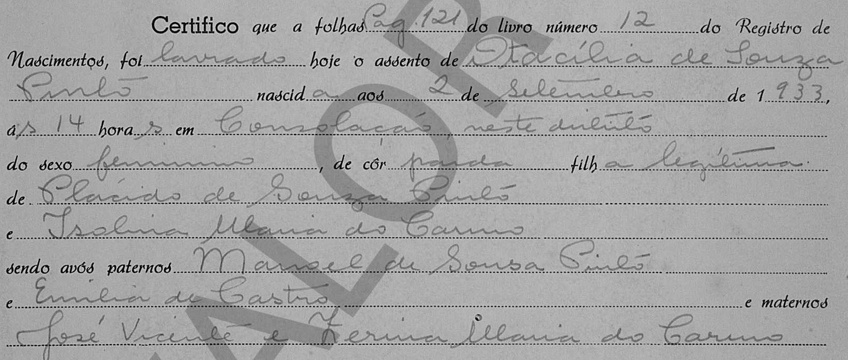 Certifico que a folhas Pag. 121 do livro número 12 do Registro de
Nascimentos, foi lavrado hoje o assento de Otacília de Souza
Pinto nascida aos 2 de Setembro de 1933,
às 14 horas em Consolação, neste distrito
do sexo feminino, de côr parda filha legítima
de Plácido de Souza Pinto
e Isolina Maria do Carmo
sendo avós paternos Manoel de Sousa Pinto
e Emilia de Castro e maternos
José Vicente e Maria do Carmo
VALOR